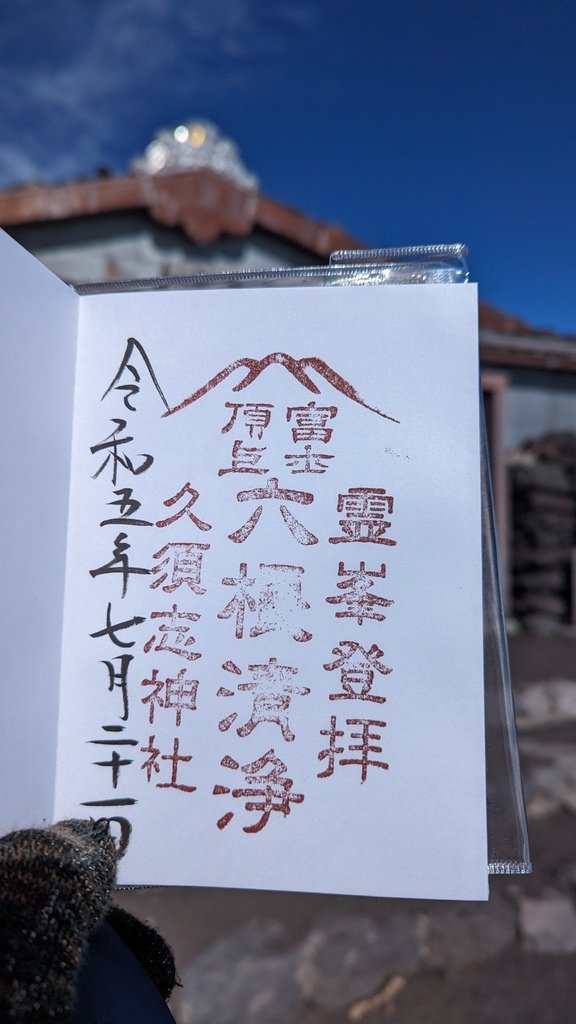 富士
頂上
霊峯登拝
六根清浄
久須志神社
令和五年七月二十一日